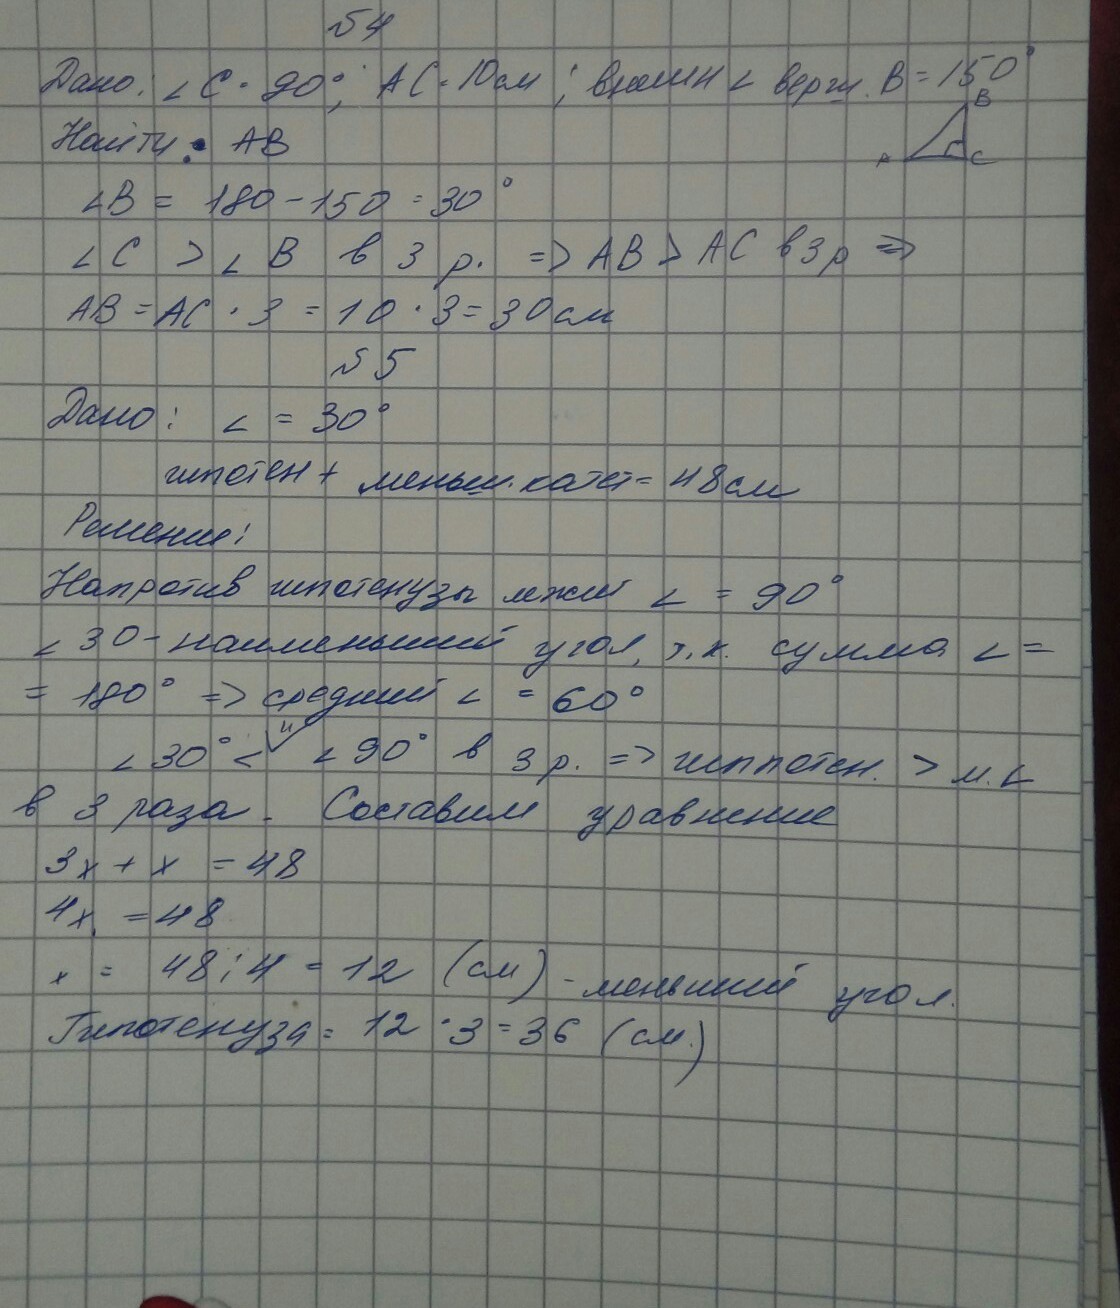 №4
Дано: ∠C = 90°; AC = 10 см; внешн ∠ верш. B = 150°
B
A C
Найти: AB
∠B = 180 - 150 = 30°
∠C > ∠B в 3 р. => AB > AC в 3 р =>
AB = AC · 3 = 10 · 3 = 30 см
№5
Дано: ∠ = 30°
гипотен + меньш. катет = 48 см
Решение:
Напротив гипотенузы лжит ∠ = 90°
∠30 - наименьший угол, т.к. сумма ∠ =
= 180° => средний ∠ = 60°
и
∠30° < ∠90° в 3 р. => гиппотен. > м.∠
в 3 раза. Составим уравнение
3x + x = 48
4x = 48
x = 48 : 4 = 12 (см) - меньший угол.
Гипотенуза = 12 · 3 = 36 (см.)